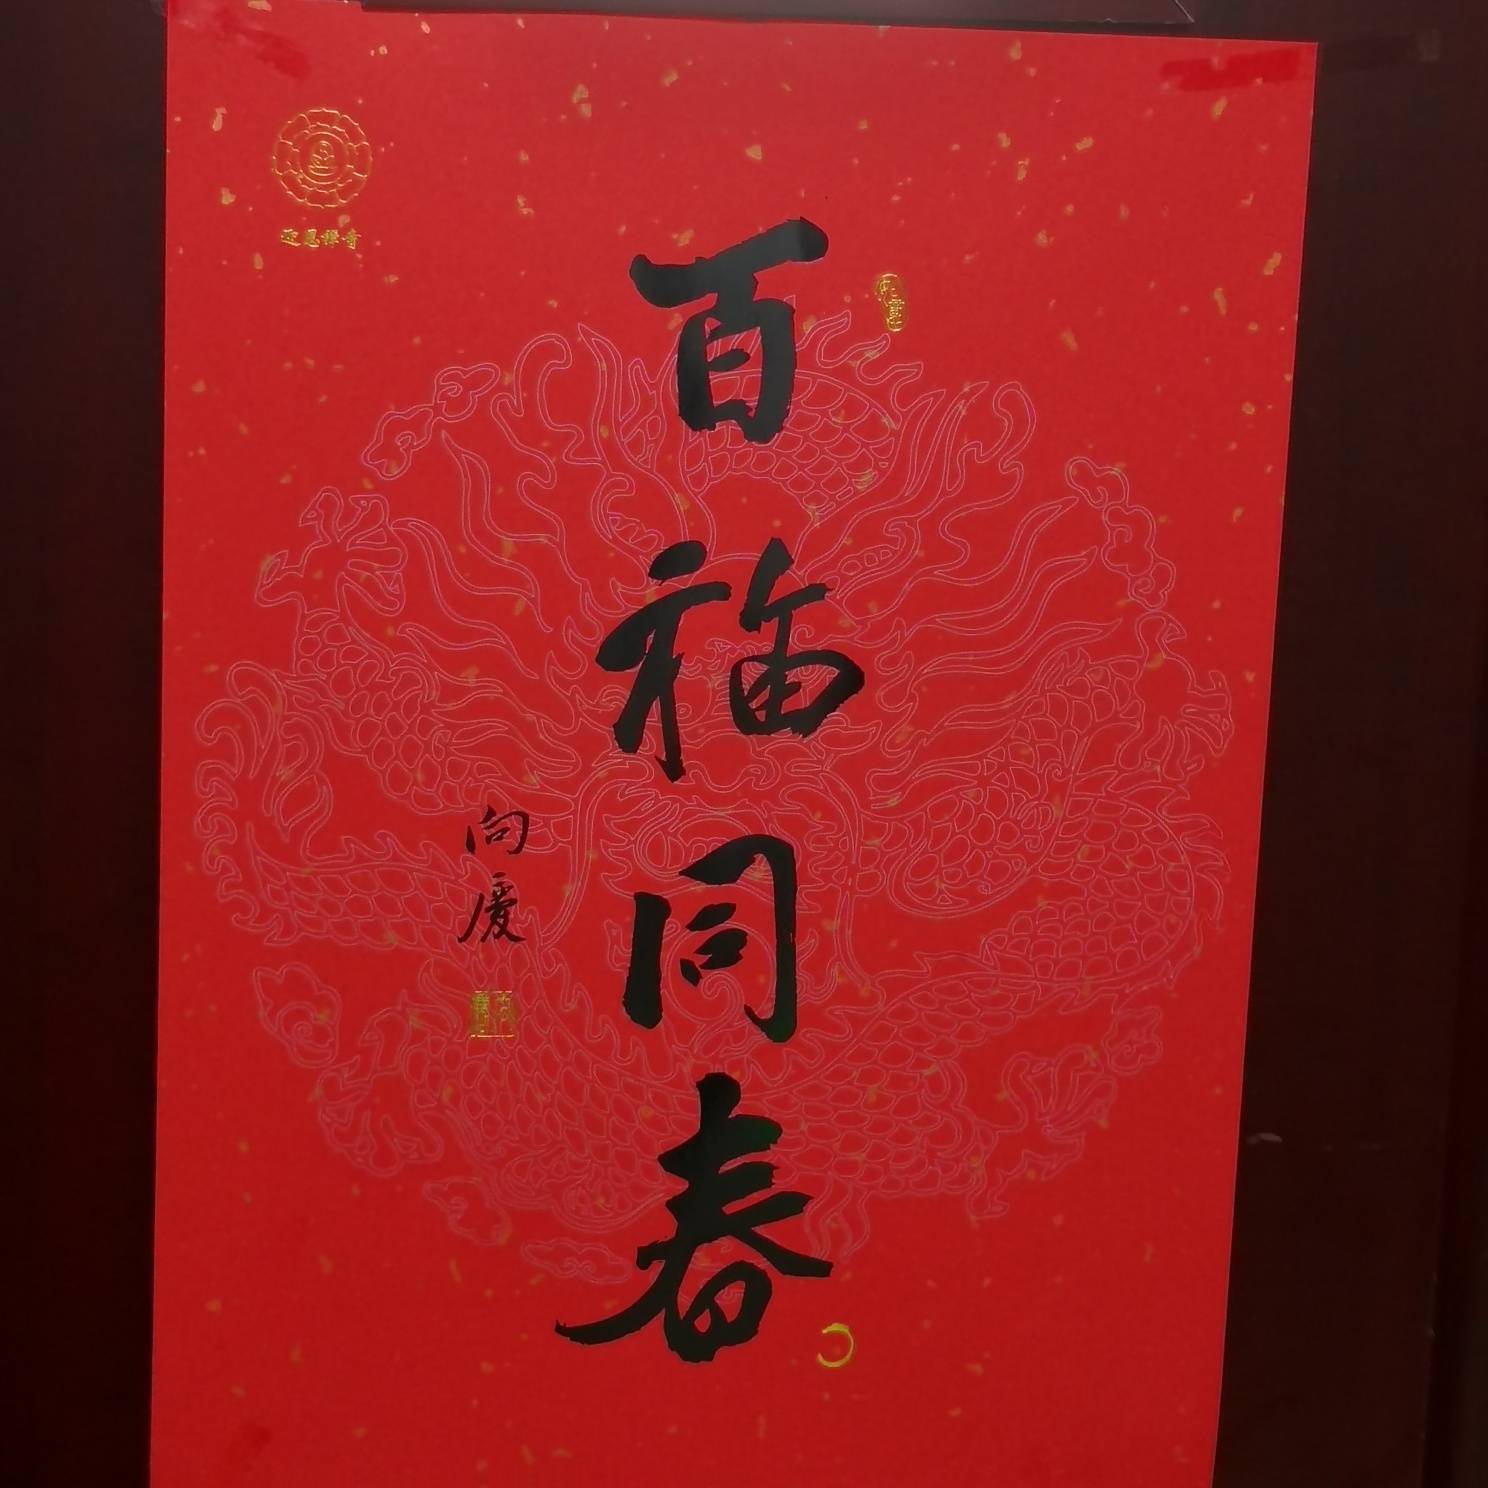 迎恩禅寺
百福同春
向慶